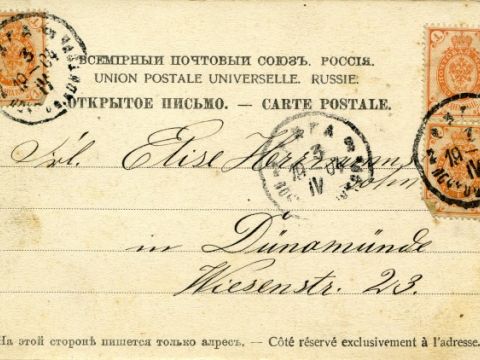 ВСЕМІРНЫЙ ПОЧТОВЫЙ СОЮЗЪ. РОССІЯ.
UNION POSTALE UNIVERSELLE. RUSSIE.
ОТКРЫТОЕ ПИСЬМО. — CARTE POSTALE.
Frl. Elise Herrmannsohn
in Dünamünde
Wiesenstr. 23.
РИГА
3
19-04
IV
На этой сторонѣ пишется только адресъ. — Côté réservé exclusivement à l'adresse.